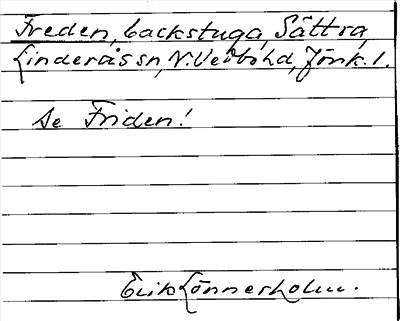 Freden, backstuga, Sättra,
Linderås sn, N. Vedbo hd, Jönk. l.
Se Friden!
Erik Lönnerholm.